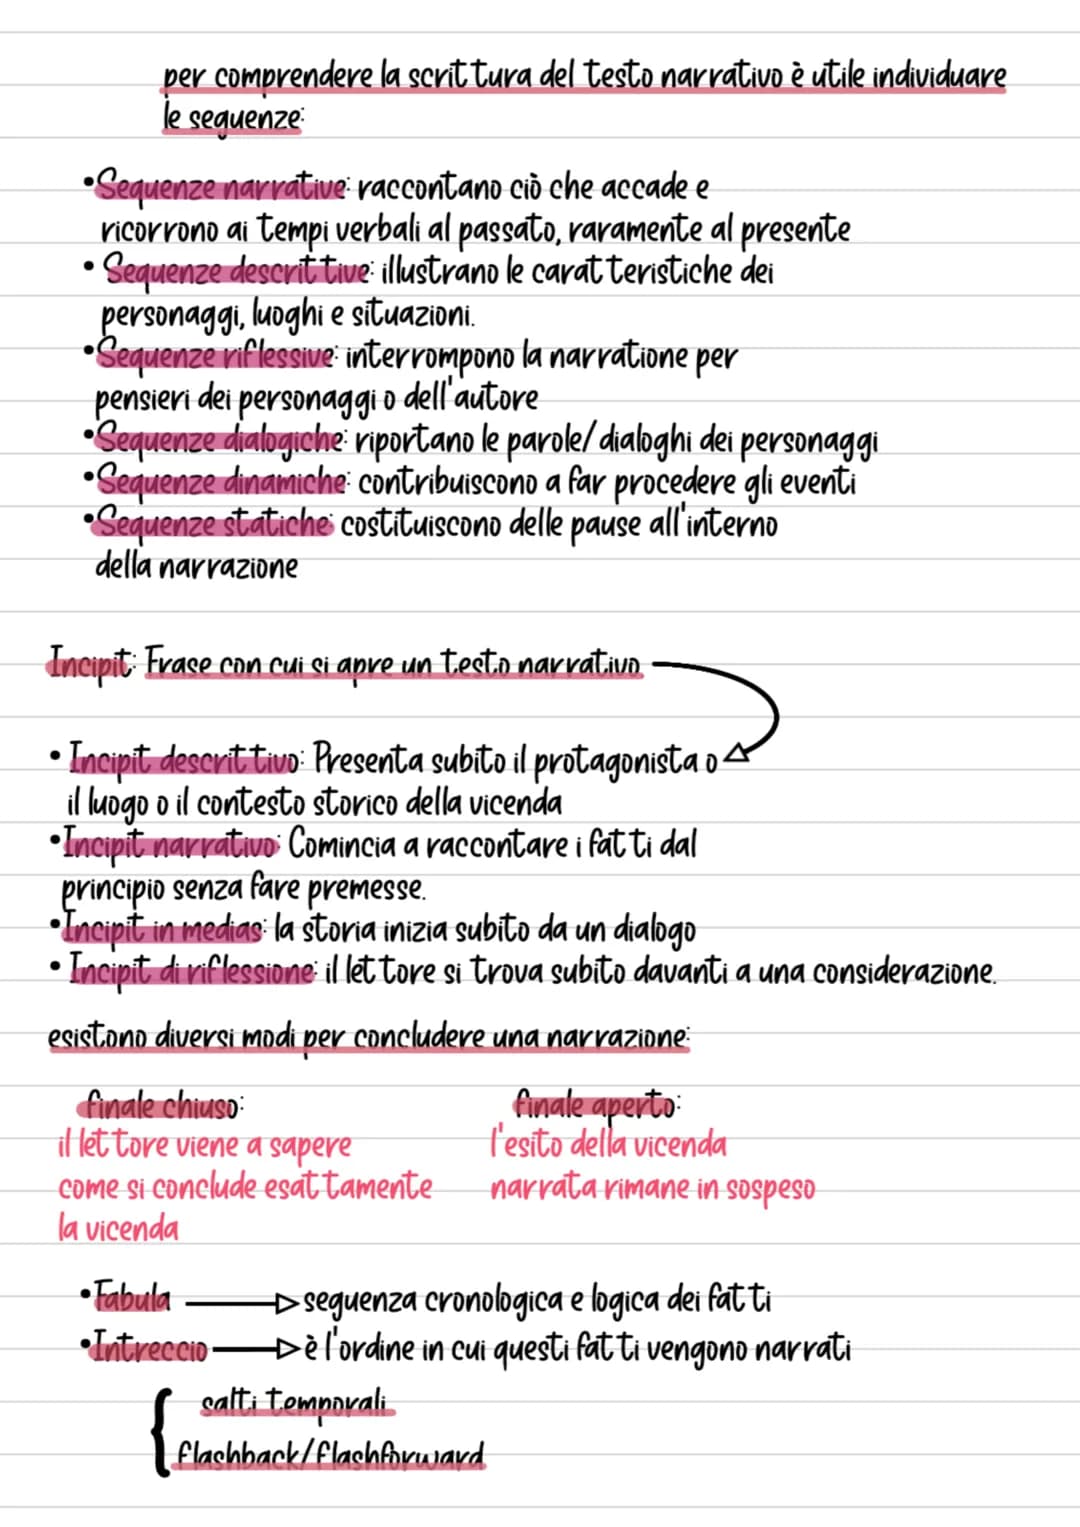 per comprendere la scrittura del testo narrativo è utile individuare
le sequenze:
•Sequenze narrative: raccontano ciò che accade e
ricorrono ai tempi verbali al passato, raramente al presente
• Sequenze descrittive: illustrano le caratteristiche dei
personaggi, luoghi e situazioni.
•Sequenze riflessive: interrompono la narratione per
pensieri dei personaggi o dell'autore
•Sequenze dialogiche: riportano le parole/dialoghi dei personaggi
•Sequenze dinamiche: contribuiscono a far procedere gli eventi
•Sequenze statiche: costituiscono delle pause all'interno
della narrazione
Incipit: Frase con cui si apre un testo narrativo
• Incipit descrittivo: Presenta subito il protagonista o
il luogo o il contesto storico della vicenda
•Incipit narrativo: Comincia a raccontare i fatti dal
principio senza fare premesse.
•Incipit in medias: la storia inizia subito da un dialogo
• Incipit di riflessione: il lettore si trova subito davanti a una considerazione.
esistono diversi modi per concludere una narrazione:
finale chiuso:
il lettore viene a sapere
come si conclude esattamente
la vicenda
finale aperto:
l'esito della vicenda
narrata rimane in sospeso
•Fabula → sequenza cronologica e logica dei fatti
•Intreccio → è l'ordine in cui questi fatti vengono narrati
{ salti temporali
flashback/flashforward